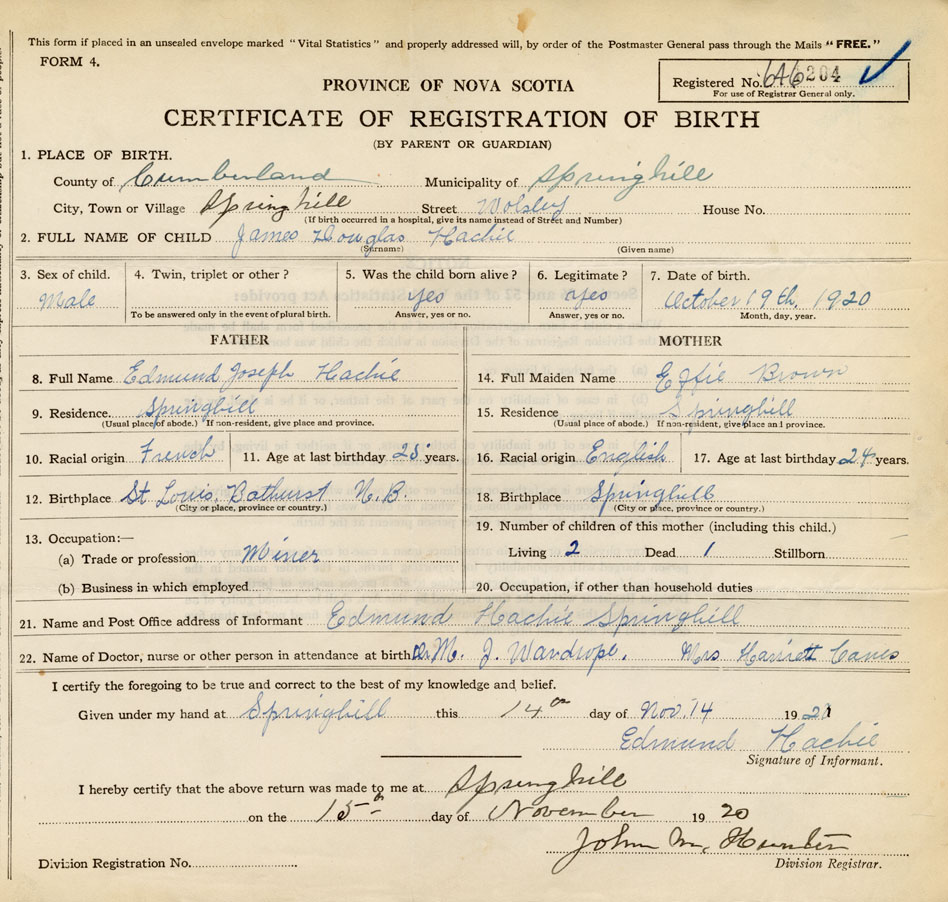 This form if placed in an unsealed envelope marked "Vital Statistics" and properly addressed will, by order of the Postmaster General pass through the Mails "FREE."
FORM 4.
Registered No. 646204 ✓
For use of Registrar General only.
PROVINCE OF NOVA SCOTIA
CERTIFICATE OF REGISTRATION OF BIRTH
(BY PARENT OR GUARDIAN)
1. PLACE OF BIRTH.
County of Cumberland Municipality of Springhill
City, Town or Village Springhill Street Wolsley House No.
(If birth occurred in a hospital, give its name instead of Street and Number)
2. FULL NAME OF CHILD James Douglas Hachie
(Surname) (Given name)
3. Sex of child. 4. Twin, triplet or other? 5. Was the child born alive? 6. Legitimate? 7. Date of birth.
Male yes yes October 19th, 1920
To be answered only in the event of plural birth. Answer, yes or no. Answer, yes or no. Month, day, year.
FATHER MOTHER
8. Full Name Edmund Joseph Hachie 14. Full Maiden Name Effie Brown
9. Residence. Springhill 15. Residence Springhill
(Usual place of abode.) If non-resident, give place and province. (Usual place of abode.) If non-resident, give place and province.
10. Racial origin French 11. Age at last birthday 25 years. 16. Racial origin English 17. Age at last birthday 24 years.
12. Birthplace St Louis, Bathurst N.B. 18. Birthplace Springhill
(City or place, province or country.) (City or place, province or country.)
13. Occupation:— 19. Number of children of this mother (including this child.)
(a) Trade or profession Miner Living 2 Dead 1 Stillborn
(b) Business in which employed 20. Occupation, if other than household duties
21. Name and Post Office address of Informant Edmund Hachie Springhill
22. Name of Doctor, nurse or other person in attendance at birth Dr. M. J. Wardrope. Mrs Harriett
I certify the foregoing to be true and correct to the best of my knowledge and belief.
Given under my hand at Springhill this 14th day of Nov. 14 19
Edmund Hachie
Signature of Informant.
I hereby certify that the above return was made to me at Springhill
on the 15th day of November 19 20
John M. Hunter
Division Registration No. Division Registrar.